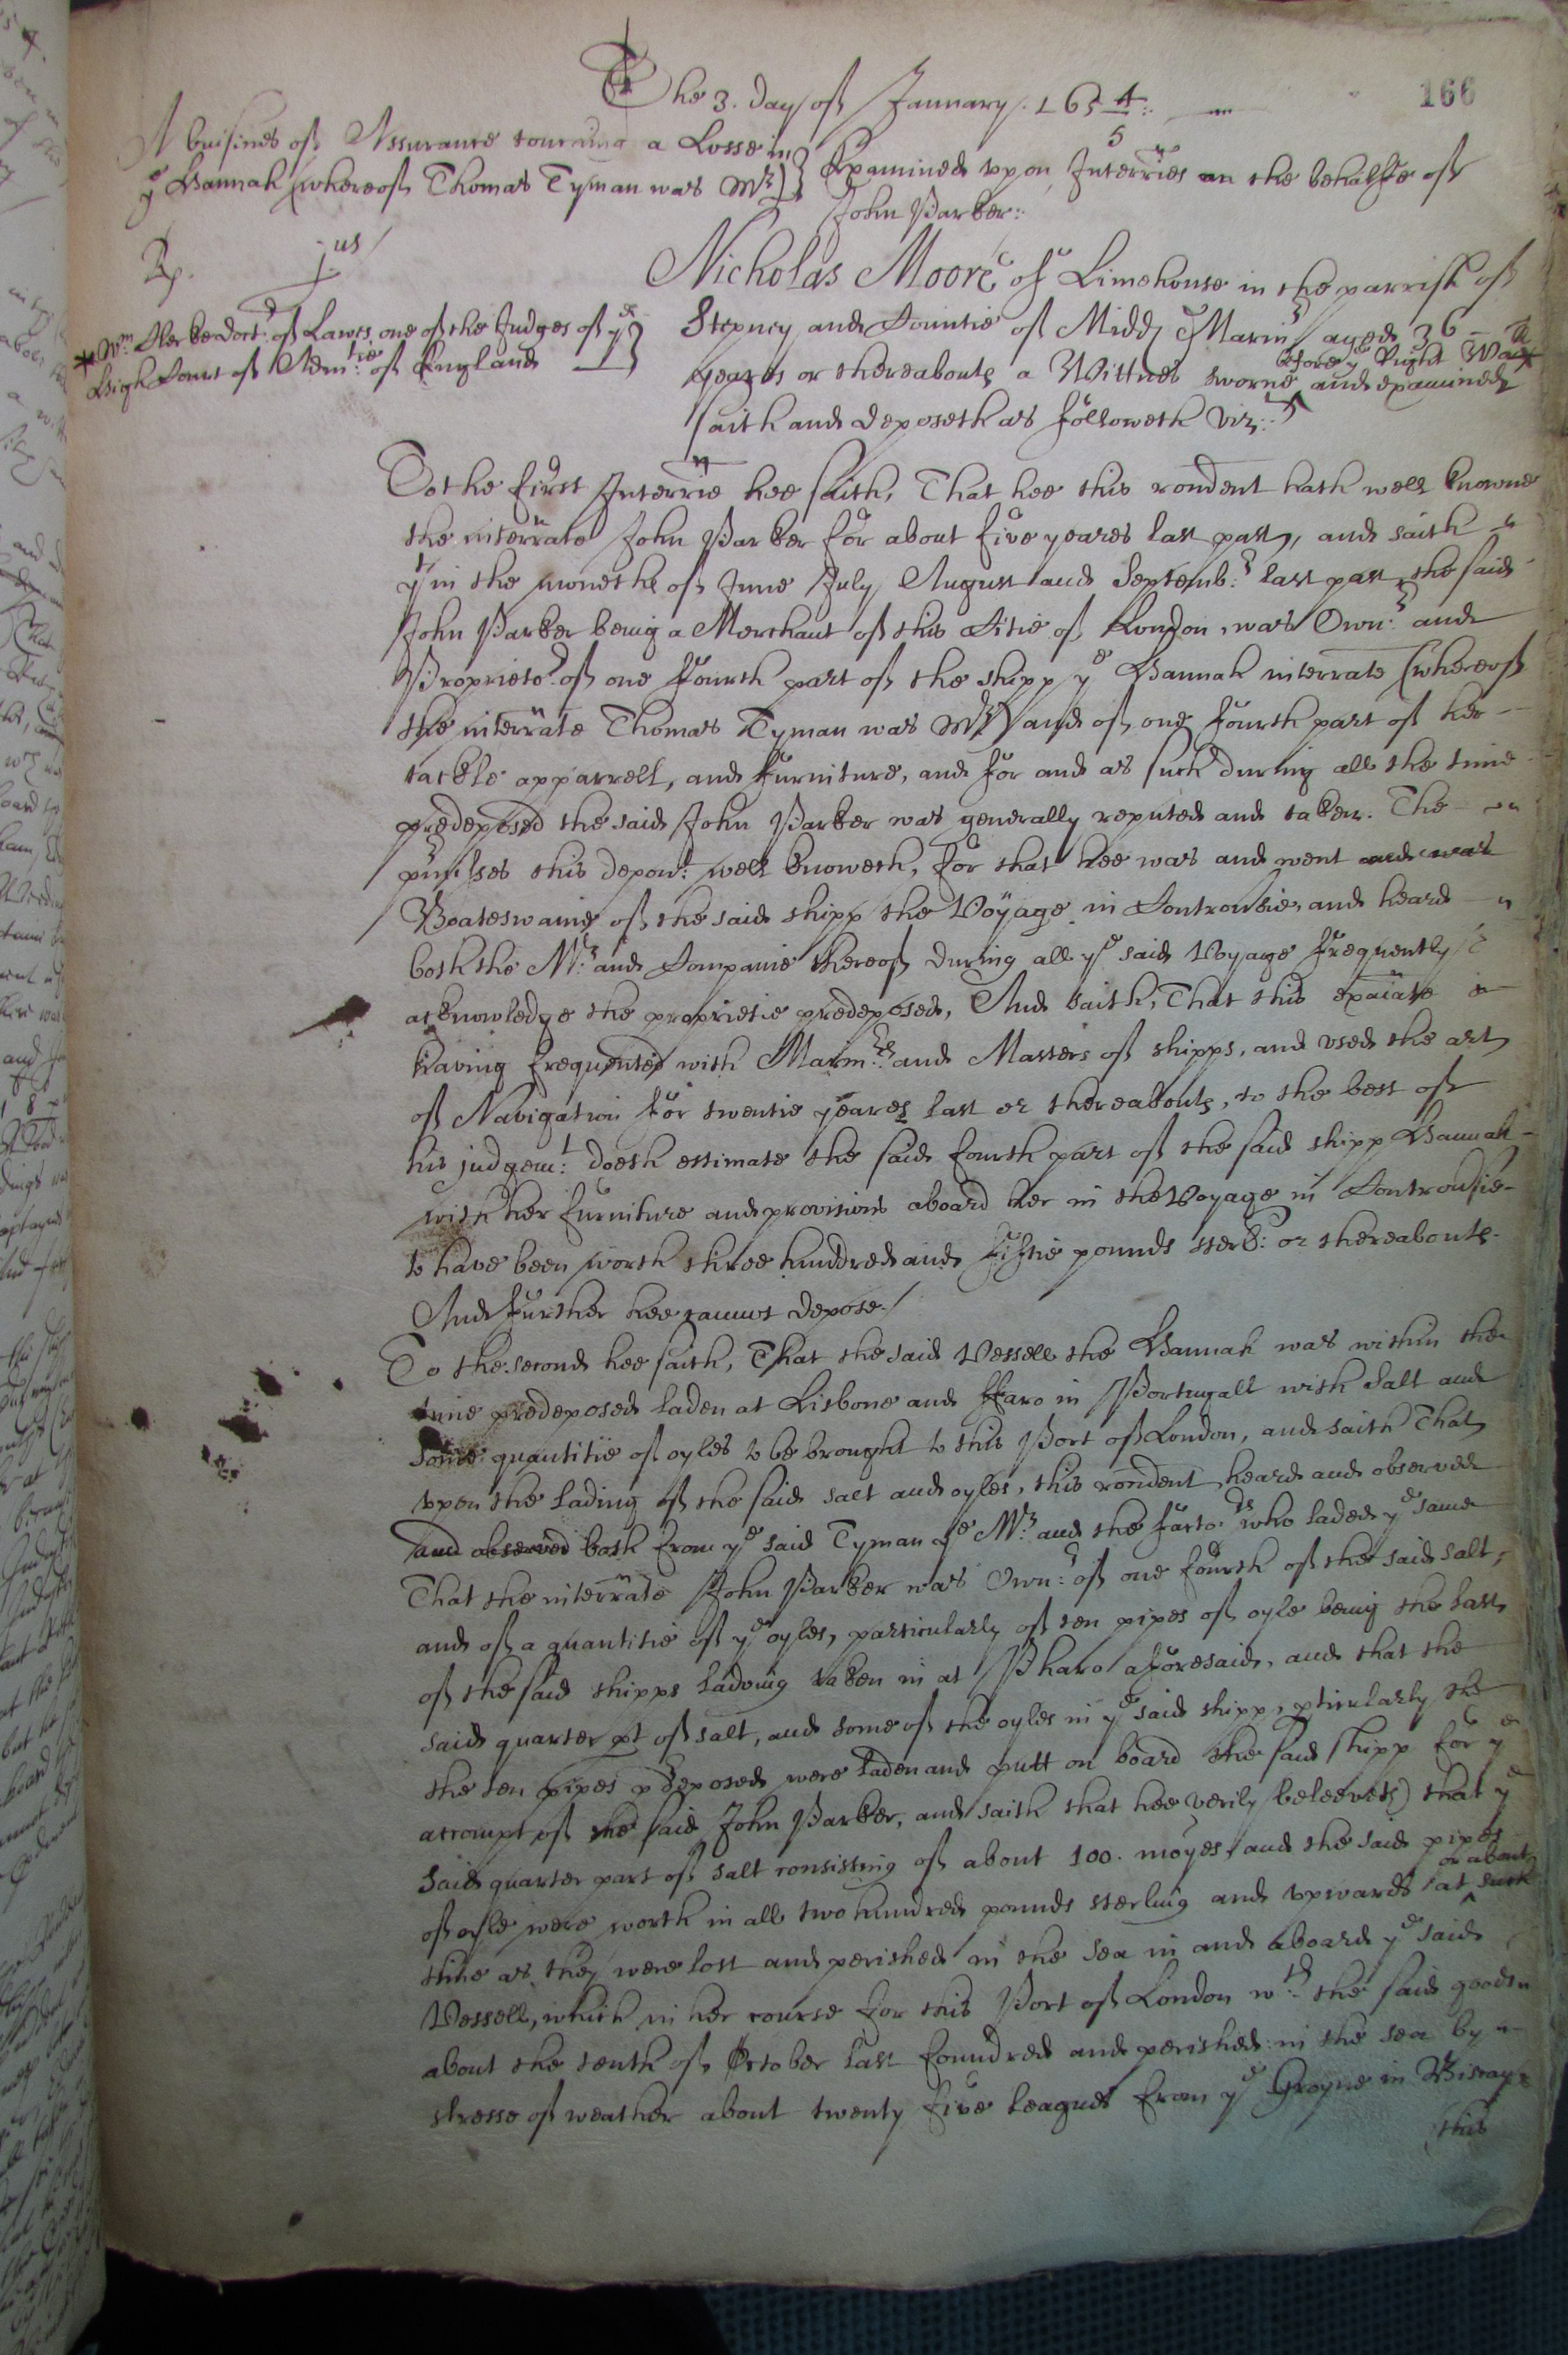 166
The 3. day of January. 165 4/5
A buisines of Assurance touching a Losse in
ye Hannah (whereof Thomas Tyman was Mr)
Examined vpon Interries on the behalfe of
John Barker:
Rp. jus
Nicholas Moore of Limehouse in the parrish of
Stepney and Countie of Midd Marinr aged 36
yeares or thereabouts a Wittnes sworne before ye Right Wor * and examined
saith and deposeth as followeth viz:
* Wm Clerke doctr of Lawes one of the Judges of ye
High Court of Admtie of England
To the first Interrie hee saith, That hee this rondent hath well knowne
the interrate John Barker for about five yeares last past, and saith
yt in the moneths of June July August and Septembr last past the said
John Barker being a Merchant of this Citie of London, was Ownr and
Proprietor of one fourth part of the shipp ye Hannah interrate (whereof
the interrate Thomas Tyman was Mr) and of one fourth part of her
tackle apparrell, and furniture, and for and as such during all the time
predeposed the said John Barker was generally reputed and taken. The
pmisses this depont well knoweth, for that hee was and went and was
Boateswaine of the said shipp the Voyage in Controvsie, and heard
both the Mr and Companie thereof during all ye said Voyage frequently
acknowledge the proprietie predeposed, And saith, That this exaiate
having frequented with Marinrs and Masters of shipps, and vsed the art
of Navigation for twentie yeares last or thereabouts, to the best of
his judgemt doeth estimate the said fourth part of the said shipp Hannah
with her furniture and provisions aboard her in the Voyage in Controvsie
to have been worth three hundred and fiftie pounds sterl: or thereabouts.
And further hee cannot depose./
To the second hee saith, That the said Vessell the Hannah was within the
time predeposed laden at Lisbone and ffaro in Portugall with salt and
some quantitie of oyles to be brought to this Port of London, and saith That
vpon the lading of the said salt and oyles, this rondent heard and observed
and observed both from ye said Tyman ye Mr and the factors who laded ye same
That the interrate John Barker was Ownr of one fourth of the said salt,
and of a quantitie of ye oyles, particularly of ten pipes of oyle being the last
of the said shipps ladeing taken in at Pharo aforesaid, and that the
said quarter pt of salt, and some of the oyles in ye said shipp, pticularly the
the ten pipes pdeposed were laden and putt on board the said shipp for ye
accompt of the said John Barker, and saith that hee verily beleeveth that ye
said quarter part of salt consisting of about 100. moyes and the said pipes
of oyle were worth in all two hundred pounds sterling and vpwards at or about such
time as they were lost and perished in the sea in and aboard ye said
Vessell, which in her course for this Port of London wth the said goods
about the tenth of October last foundred and perished in the sea by
stresse of weather about twenty five leagues from ye Groyne in Biscay
this